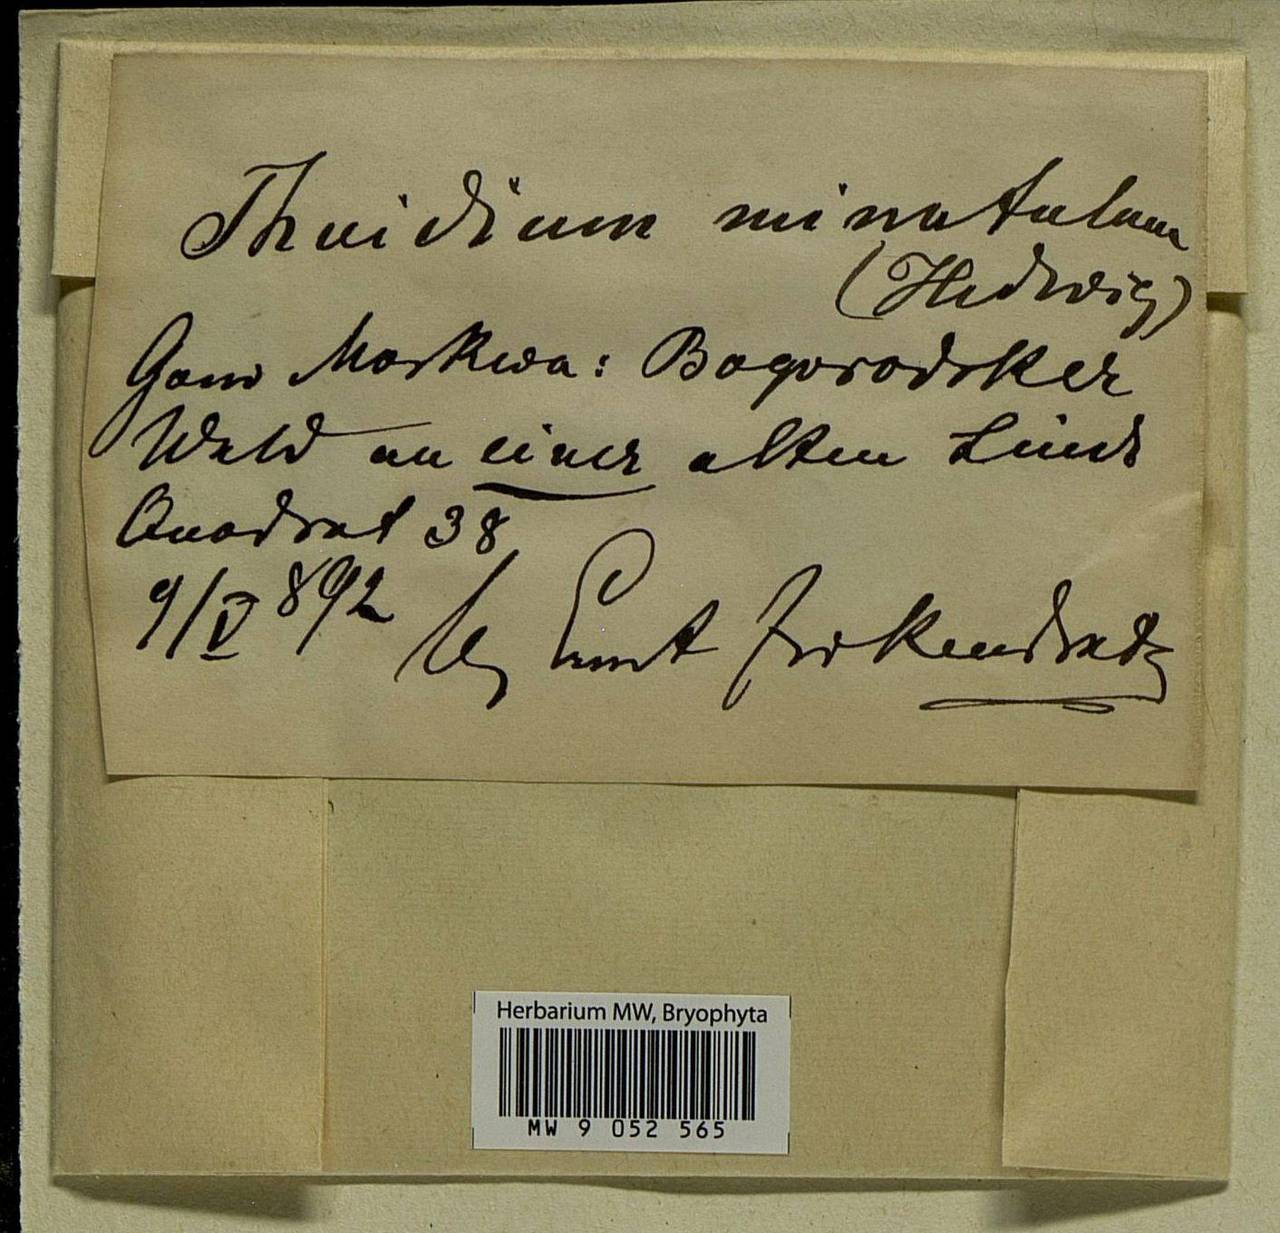 Thuidium minutulum
(Hedwig)
Gouv Moskwa: Bogorodsker
Wald an einer alten Linde
Quadrat 38
9/V 892 leg Ernst Zickendratz
Herbarium MW, Bryophyta
MW 9 052 565